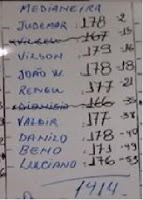 MEDIANEIRA
JUDEMAR .178 -2
VILSON 179 -16
JOÃO W. 178 -18
RENEU 177 -21
166 -35
VALDIR 177
DANILO .178 -40
BENO .171 -49
LUCIANO .176 -53
1414